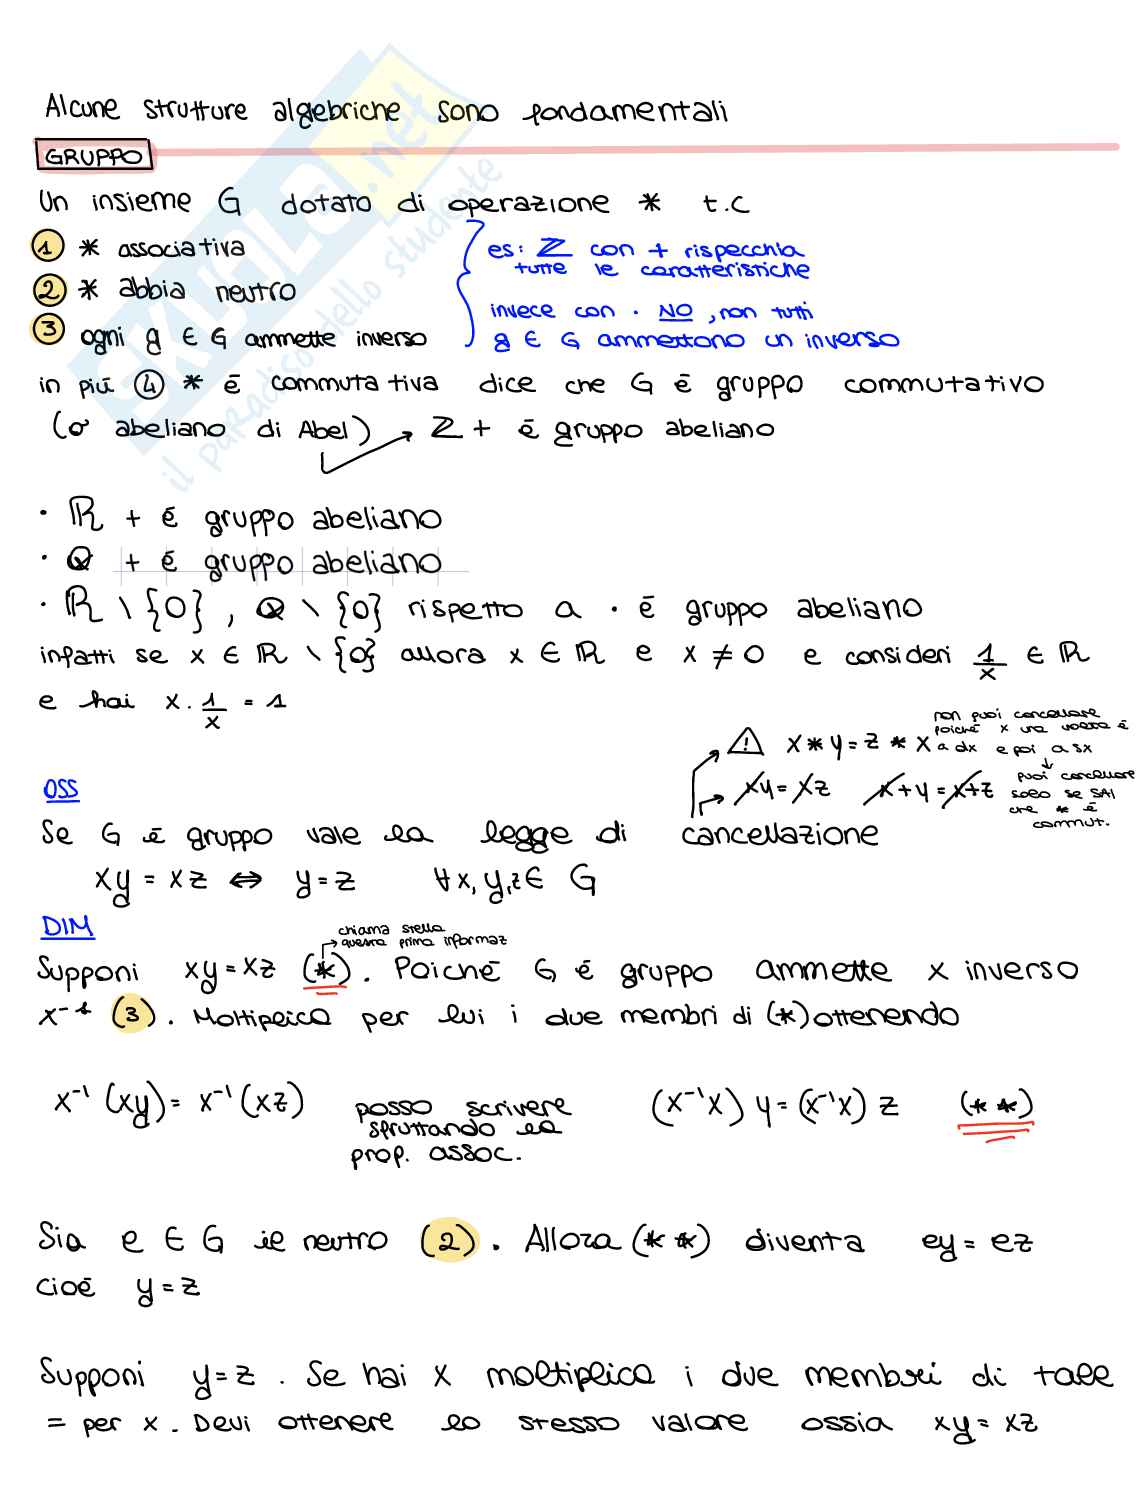 Alcune strutture algebriche sono fondamentali
GRUPPO
Un insieme G dotato di operazione * t.c
1 * associativa
2 * abbia neutro
3 ogni g ∈ G ammette inverso
es: ℤ con + rispecchia
tutte le caratteristiche
invece con · NO, non tutti
g ∈ G ammettono un inverso
in più 4 * è commutativa dice che G è gruppo commutativo
(o abeliano di Abel) → ℤ + è gruppo abeliano
· ℝ + è gruppo abeliano
· ℚ + è gruppo abeliano
· ℝ \ {0}, ℚ \ {0} rispetto a · è gruppo abeliano
infatti se x ∈ ℝ \ {0} allora x ∈ ℝ e x ≠ 0 e consideri 1/x ∈ ℝ
e hai x · 1/x = 1
⚠ x * y = z * x
non puoi cancellare
poichè x una volta è
a dx e poi a sx
xy = xz x+y = x+z
puoi cancellare
solo se SAI
che * è
commut.
OSS
Se G è gruppo vale la legge di cancellazione
xy = xz ⇔ y = z ∀ x, y, z ∈ G
DIM
chiama stella
questa prima informaz
Supponi xy = xz (*). Poichè G è gruppo ammette x inverso
x⁻¹ (3). Moltiplica per lui i due membri di (*) ottenendo
x⁻¹ (xy) = x⁻¹ (xz)
posso scrivere
sfruttando la
prop. assoc.
(x⁻¹x) y = (x⁻¹x) z (**)
Sia e ∈ G il neutro (2). Allora (**) diventa ey = ez
cioè y = z
Supponi y = z. Se hai x moltiplica i due membri di tale
= per x. Devi ottenere lo stesso valore ossia xy = xz
SKUOLA.net
il paradiso dello studente